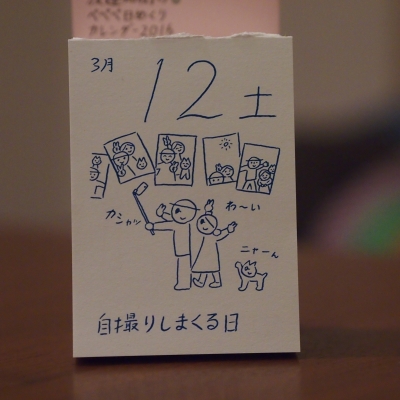 べべべ日めくり
カレンダー2016
3月
12土
カシャッ
わ〜い
ニャーん
自撮りしまくる日